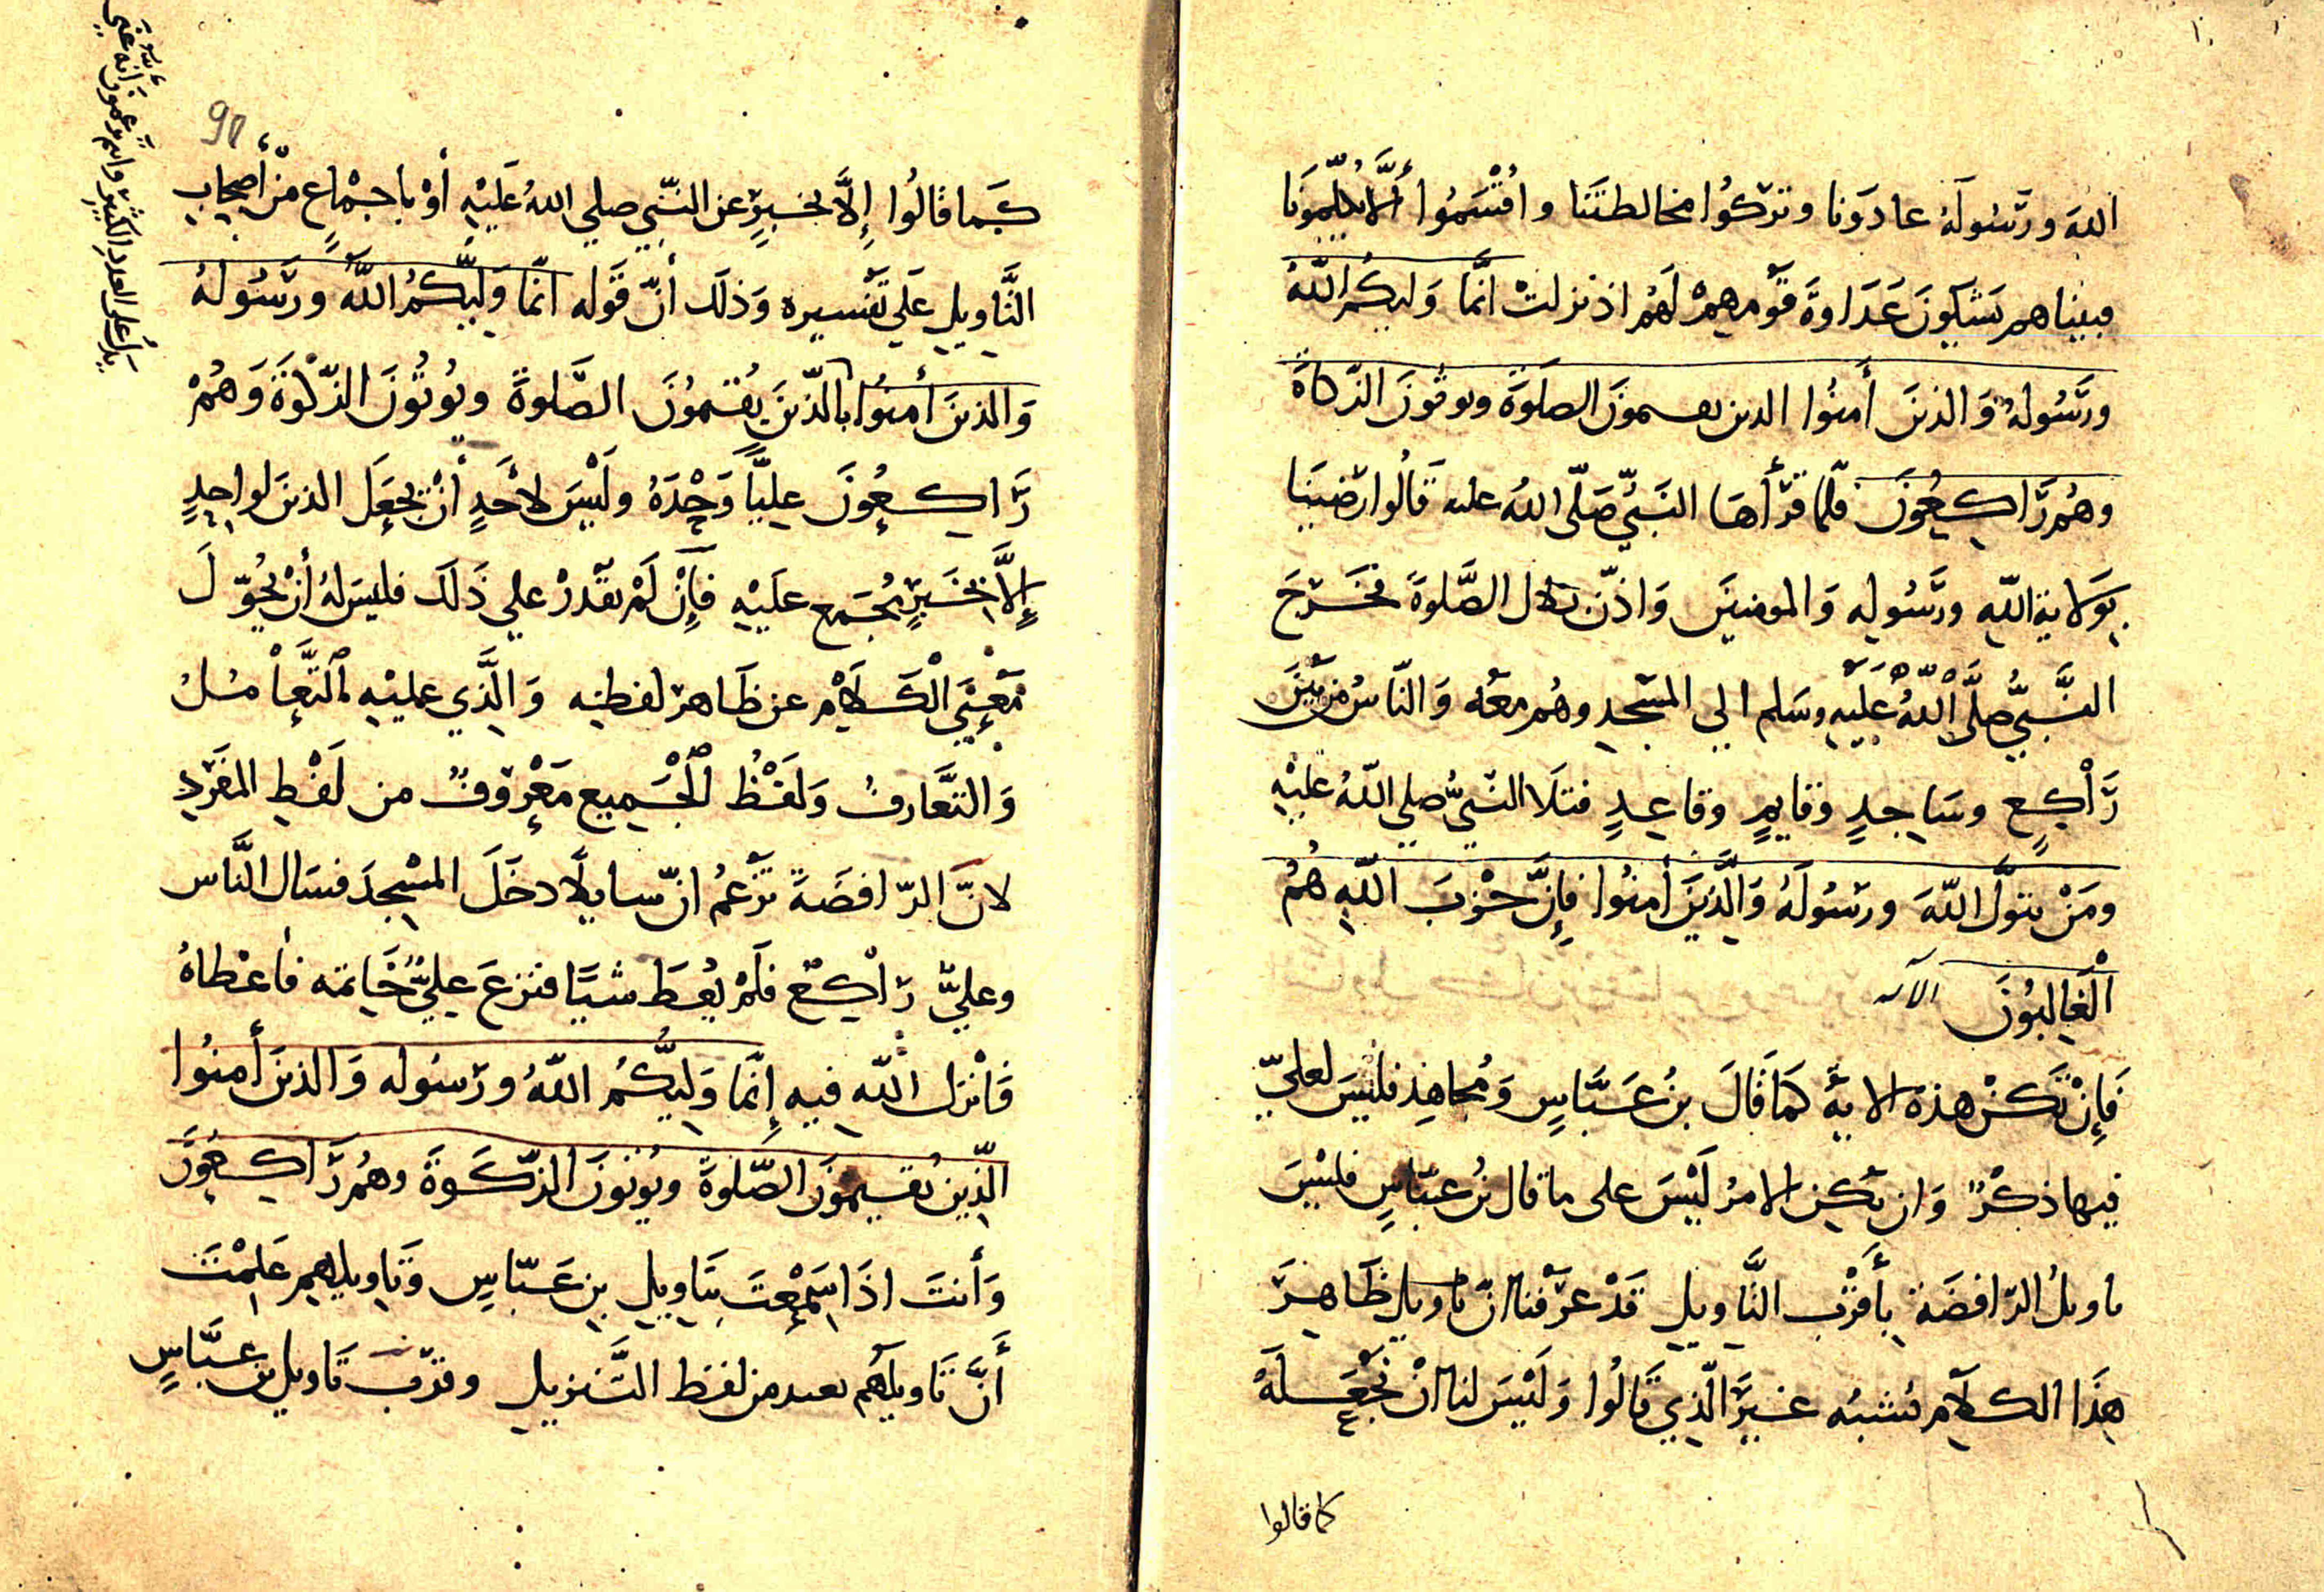 اللهَ وَرَسُولَهُ عادَوْنا وتَركُوا مخالطتَنَا واقْتسَمُوا أَلَّا يُكلِّمونَا
فبينا هم يَشكُونَ عَدَاوةَ قَوْمِهِمْ لَهُم اذ نزلتْ انَّمَا وَليكُمُ اللّهُ
ورَسُولهُ وَالذينَ أمنُوا الدىن ىعىمونَ الصلَوةَ وىوتُونَ الزّكاةَ
وهُم رَاكِعُونَ فلمّا قرَأهَا النَبيّ صَلّى اللهُ علىه قَالُوا رَضينَا
بِوَلايةِ اللهِ ورَسُولِهِ وَالمومنينَ وَاذّنَ بلال الصَّلوةَ فخَرَجَ
النَّبيُّ صلَّى اللّهُ عَلَيْهِ وسَلم الي المسْجِدِ وهُم معَهُ وَالنّاسُ من بَيْنَ
رَاكِعٍ وسَاجدٍ وقايمٍ وقاعِدٍ فتَلَا النّبيُّ صلي اللهُ عليْهِ
ومَنْ يتولَّ اللّهَ ورسُولَهُ وَالَّذِينَ أمنُوا فإِنَّ حزْبَ اللّهِ هُمُ
الْغالِبُونَ الآىه
فَإِنْ تَكنْ هذه الايةُ كمَا قَالَ بنُ عَبَّاسٍ وَمُجاهِد فلَيْسَ لعليّ
فيها ذكْرٌ وَان يَكن الامرُ لَيْسَ على ما قال بنُ عبّاسٍ فلىْسَ
ىاوىلُ الرّافضَةِ بِأَقرَب التَّاويلِ قَدْ عَرَفْنا انّ تاويلَ ظَاهِرَ
هذَا الكلَامِ ىُشبهُ غيرَ الّذِي قَالُوا وَلَيْسَ لنا انْ نجْعَلَهُ
كما قالوا
90
كَما قَالُوا إِلَّا بخَبرٍ عن النّبيّ صلي اللهُ عَلَيْهِ أوْ باجْماعٍ منْ أصْحابِ
التَّاويلِ عَلَي تَفسيرِه وَذلَك أنّ قَوْله انّمَا وَليُّكمُ اللهُ ورَسُولهُ
وَالذينَ أمنُوا الّذينَ يُقيمُونَ الصَّلوةَ ويُوتُونَ الزّكوةَ وَهُمْ
رَاكعُونَ عليَّاً وَحْدَهُ ولَيْسَ لاحَدٍ أنْ يجعَلَ الذينَ لواحدٍ
إِلَّا بخَبرٍ مُجمَعٍ علَيْهِ فَإِنْ لَمْ يقْدرْ علي ذَلكَ فليسَ لهُ أنْ يُحوّلَ
مَعْنَي الْكَلَامِ عن ظَاهرِ لفظِهِ وَالَّذِي عليْهِ التَّعامُلُ
وَالتَّعَارفُ وَلَفْظُ الْجَميعِ مَعْرُوفٌ من لَفْظِ المفرَدِ
لانَّ الرّافضَةَ تَزْعمُ انّ سايلًا دخَلَ المسْجِدَ فسَال النَّاس
وعليٌّ رَاكعٌ فلَمْ يُعطَ شيَّا فنزعَ عليٌّ خَاتمَه فأعْطاهُ
فَانْزلَ اللّه فيهِ إِنّمَا وَليُّكُمُ اللّهُ ورَسُوله وَالذينَ أمنُوا
الّذِين يُقيمُونَ الصّلوةَ ويُوتونَ الزّكَوةَ وهُم رَاكعُونَ
وَأنتَ اذَا سَمِعْتَ بتَاويلِ بنِ عَبّاسٍ وَتاويلهِم عَلِمْتَ
أَنَّ تَاويلَهُم ىعىد من لفظ التَّنزيلِ وقرّبَ تَاويل بن عبّاسٍ